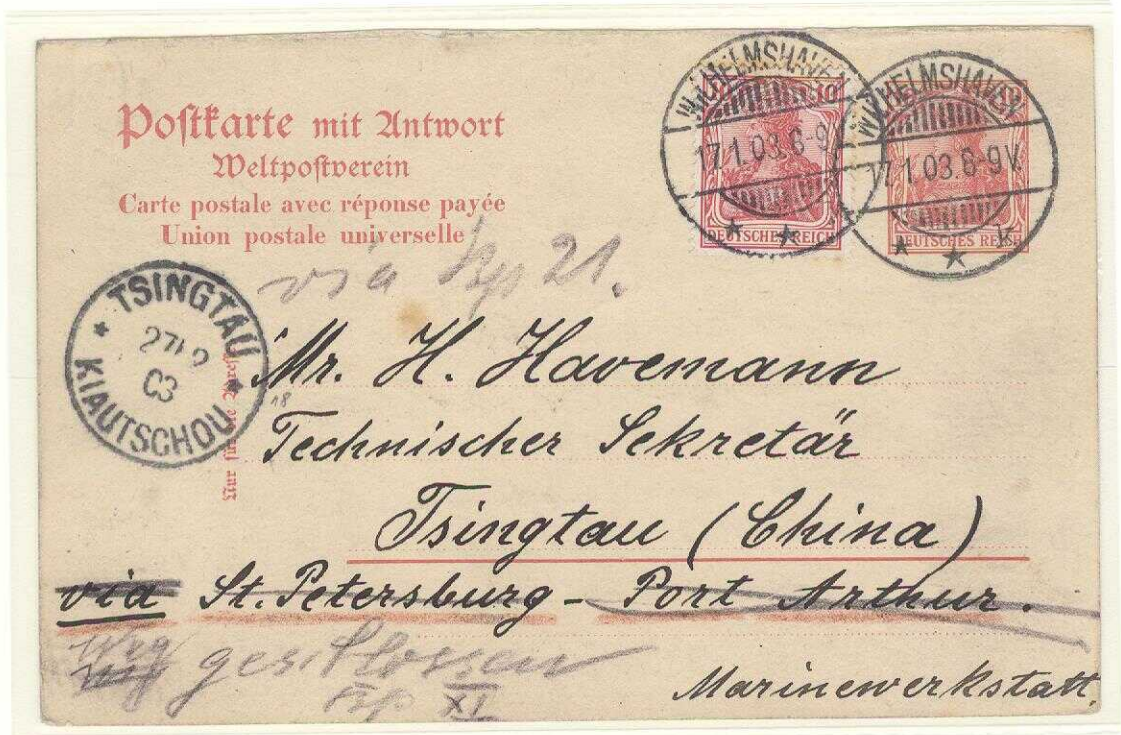 Postkarte mit Antwort
Weltpostverein
Carte postale avec réponse payée
Union postale universelle
10
DEUTSCHES REICH
DEUTSCHES REICH
WILHELMSHAVEN
17.1.03.8-9V.
WILHELMSHAVEN
17.1.03.8-9V.
K
via 21.
TSINGTAU
03
KIAUTSCHOU
Nur für die
18
Mr. H. Havemann
Technischer Sekretär
Tsingtau (China)
via St. Petersburg - Port Arthur.
Weg geschlossen
XI
Marinewerkstatt.